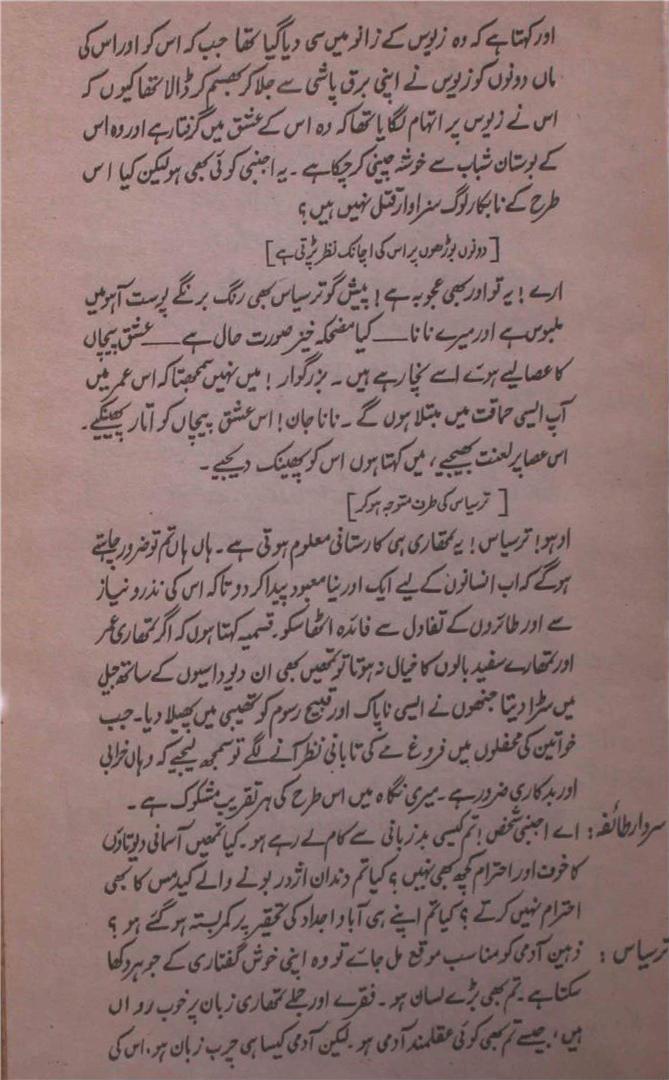 اور کہتا ہے کہ وہ زیوس کے زانو میں سی دیا گیا تھا جب کہ اس کو اور اس کی
ماں دونوں کو زیوس نے اپنی برق پاشی سے جلا کر بھسم کر ڈالا تھا کیوں کہ
اس نے زیوس پر اتہام لگایا تھا کہ وہ اس کے عشق میں گرفتار ہے اور وہ اس
کے بوستان شباب سے خوشہ چینی کر چکا ہے ۔ یہ اجنبی کوئی بھی ہو لیکن کیا اس
طرح کے نابکار لوگ سزاوار قتل نہیں ہیں ؟
[ دونوں بوڑھوں پر اس کی اچانک نظر پڑتی ہے ]
ارے ! یہ تو اور بھی عجوبہ ہے ! پیش گو ترسیاس بھی رنگ برنگے پوست آہو میں
ملبوس ہے اور میرے نانا ــــ کیا مضحکہ خیز صورت حال ہے ــــ عشق پیچاں
کا عصا لیے ہوئے اسے نچا رہے ہیں ۔ بزرگوار ! میں نہیں سمجھتا کہ اس عمر میں
آپ ایسی حماقت میں مبتلا ہوں گے ۔ نانا جان ! اس عشق پیچاں کو اتار پھینکیے ۔
اس عصا پر لعنت بھیجیے ، میں کہتا ہوں اس کو پھینک دیجیے ۔
[ ترسیاس کی طرف متوجہ ہو کر ]
اوہو ! ترسیاس ! یہ تمھاری ہی کارستانی معلوم ہوتی ہے ۔ ہاں ہاں تم تو ضرور چاہتے
ہوگے کہ اب انسانوں کے لیے ایک اور نیا معبود پیدا کر دو تاکہ اس کی نذر و نیاز
سے اور طائروں کے تفاول سے فائدہ اٹھا سکو ۔ قسمیہ کہتا ہوں کہ اگر تمھاری عمر
اور تمھارے سفید بالوں کا خیال نہ ہوتا تو تمھیں بھی ان دیوداسیوں کے ساتھ جیل
میں سڑا دیتا جنھوں نے ایسی ناپاک اور قبیح رسوم کو تھیبی میں پھیلا دیا ۔ جب
خواتین کی محفلوں میں فروغ مے کی تابانی نظر آنے لگے تو سمجھ لیجیے کہ وہاں خرابی
اور بدکاری ضرور ہے ۔ میری نگاہ میں اس طرح کی ہر تقریب مشکوک ہے ۔
سردار طائفہ : اے اجنبی شخص ! تم کیسی بدزبانی سے کام لے رہے ہو ۔ کیا تمھیں آسمانی دیوتاؤں
کا خوف اور احترام کچھ بھی نہیں ؟ کیا تم دندان اژدر بونے والے کیدمس کا بھی
احترام نہیں کرتے ؟ کیا تم اپنے ہی آبا و اجداد کی تحقیر پر کمربستہ ہو گئے ہو ؟
ترسیاس : ذہین آدمی کو مناسب موقع مل جائے تو وہ اپنی خوش گفتاری کے جوہر دکھا
سکتا ہے ۔ تم بھی بڑے لسان ہو ۔ فقرے اور جملے تمھاری زبان پر خوب رواں
ہیں ، جیسے تم بھی کوئی عقلمند آدمی ہو ۔ لیکن آدمی کیسا ہی چرب زبان ہو ، اس کی